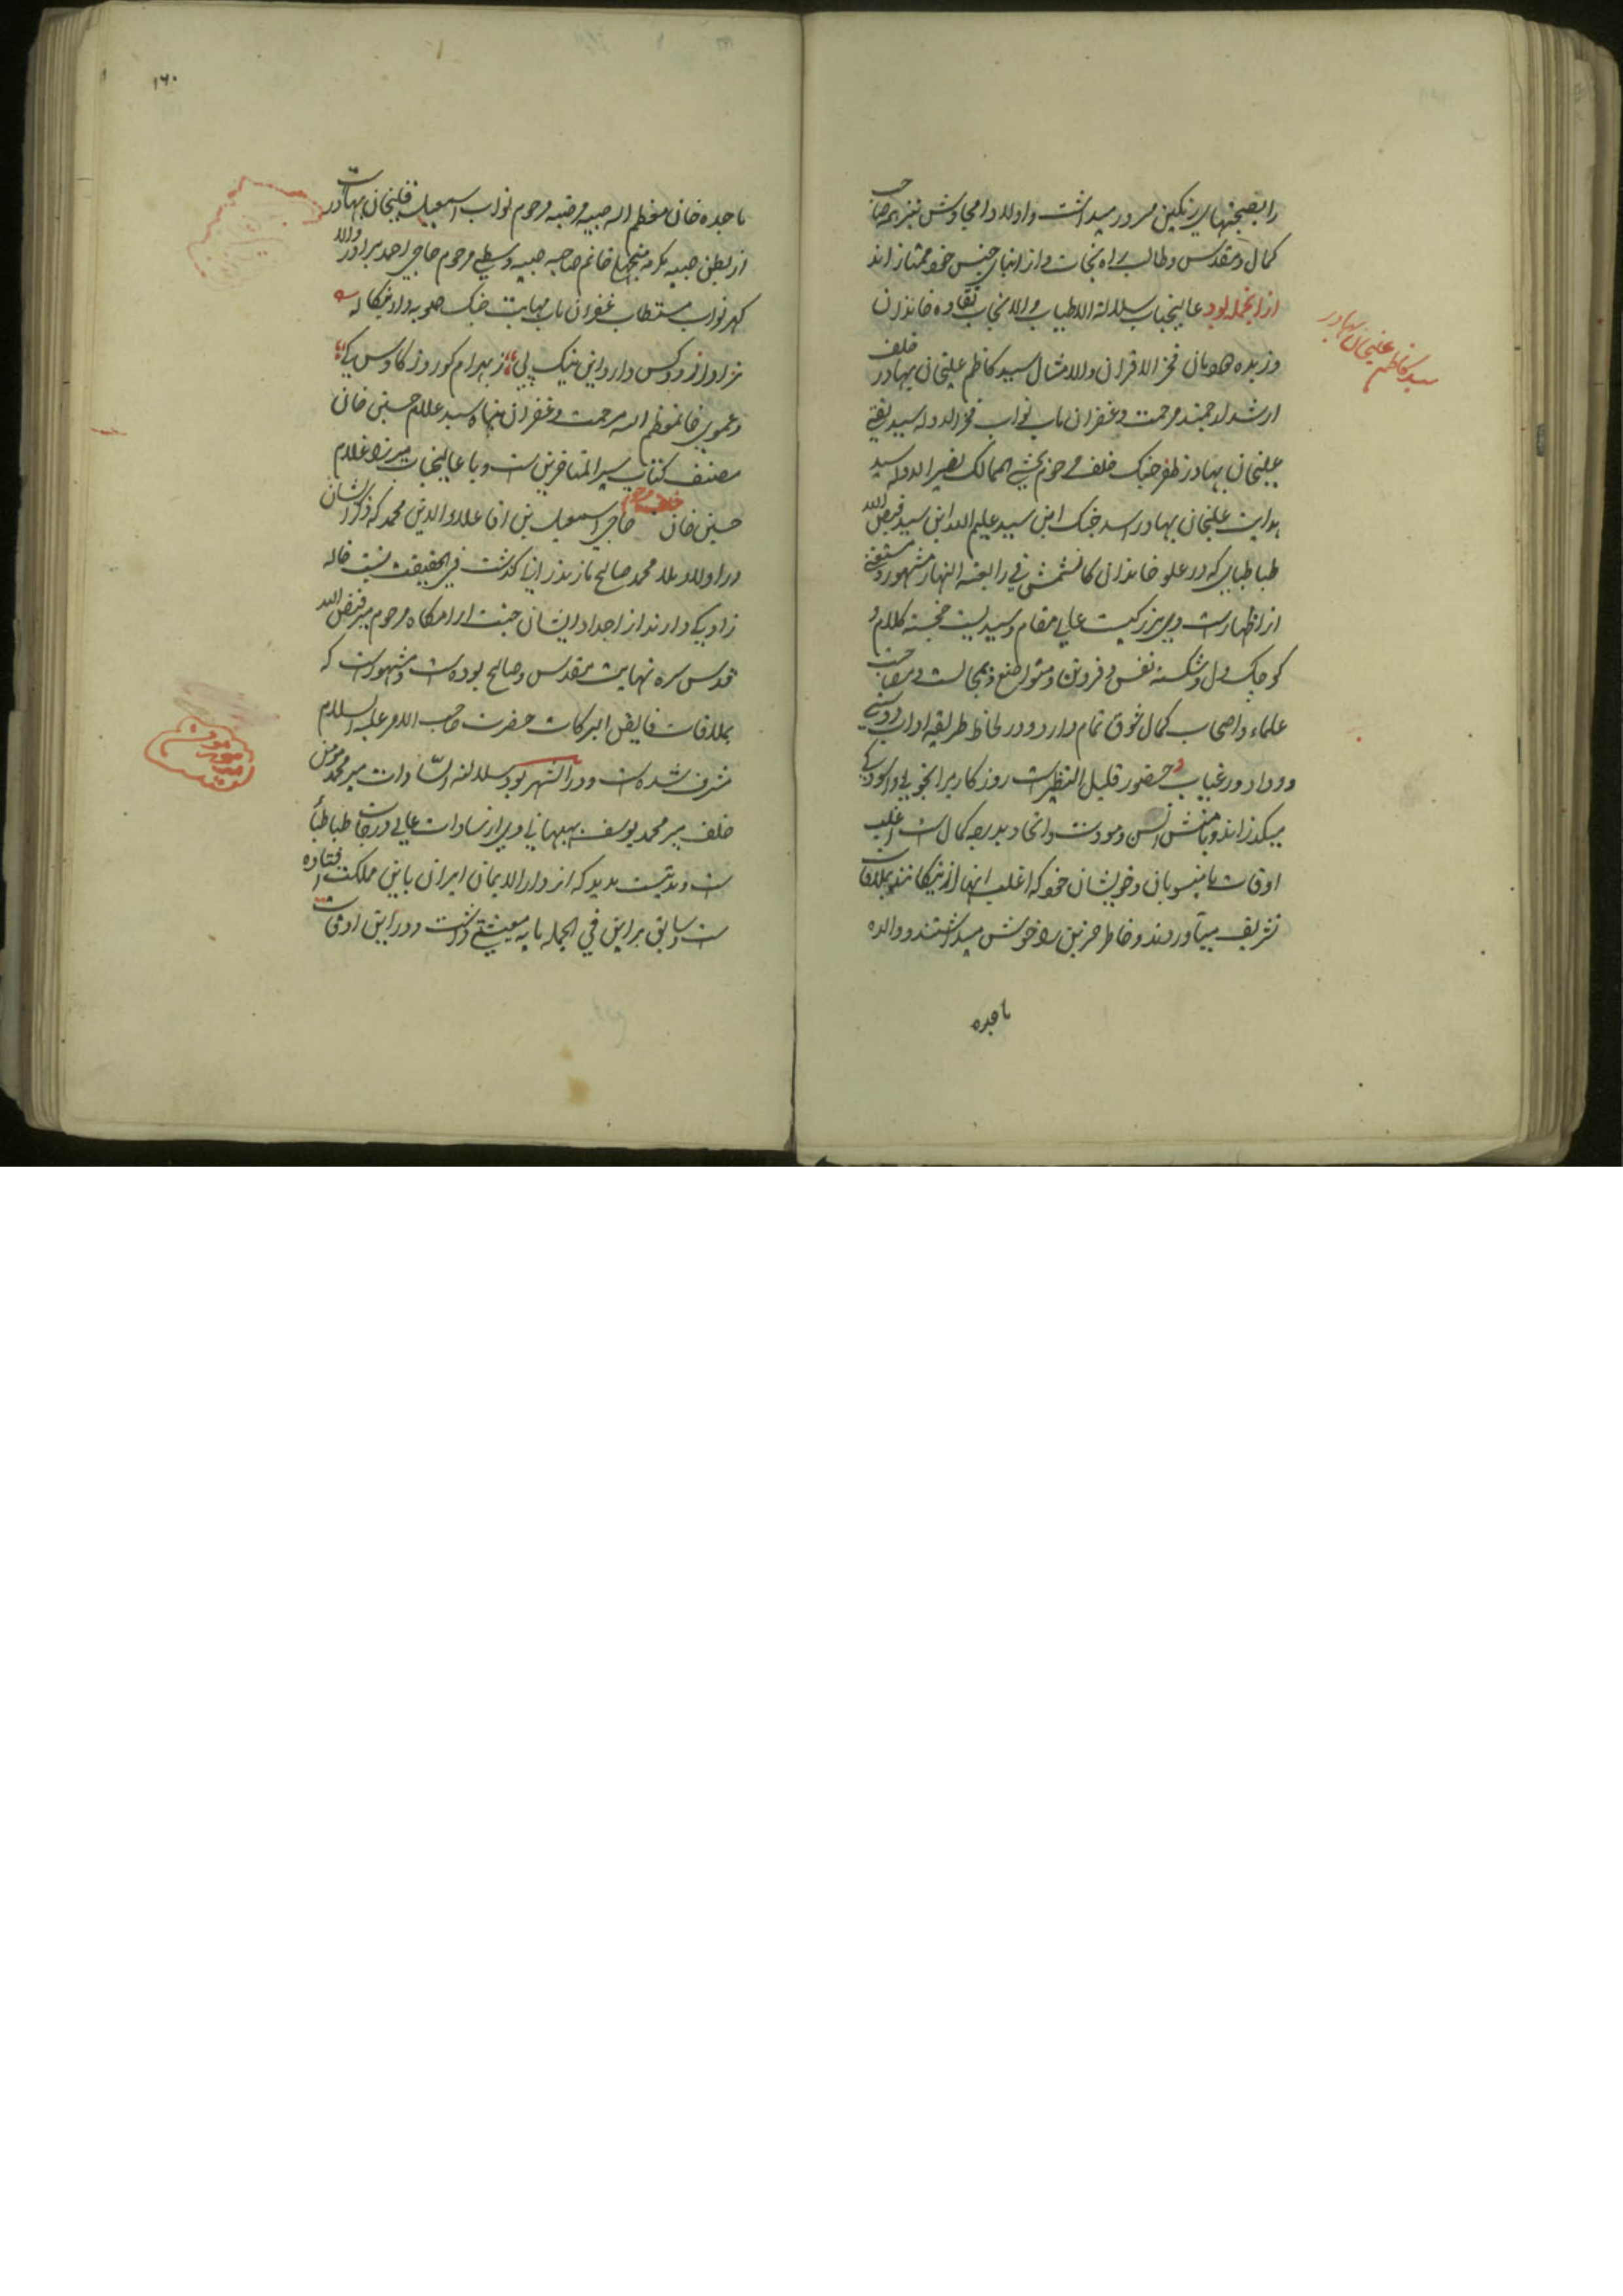 را بصحبتهای رنگین مسرور میداشت و اولاد امجادش نیز همه صاحب
کمال و مقدس و طالب راه نجات و از ابنای جنس خود ممتازاند
از انجمله بود عالیجناب سلالة الاطیاب و الانجاب نقاوه خاندان
وزبده دودمان فخر الاقران والامثال سید کاظم علیخان بهادر خلف
ارشد ارجمند مرحمت و غفران ماب نواب فخر الدوله سید نقی
علیخان بهادر ظفر جنک خلف مرحوم بخشی الممالک نصیر الدوله سید
هدایت علیخان بهادر اسد جنک ابن سید علیم الله ابن سید فیض الله
طباطبایی که در علو خاندان کالشمس فی رابعة النهار مشهور و مستغنی
از اظهارست وی بزرکیست عالی مقام و سیدیست خجسته کلام و
کوچک دل و شکسته نفس و فروتن و متواضع و بمجالست و مصاحبت
علماء و اصحاب کمال شوق تمام دارد و در لحاظ طریقه اداب دوستی
و وداد در غیاب و حضور قلیل النظیرست روزکار برا بخوبی و اسودکی
میکذراند و بامنش انس و مودت و اتحاد بدرجه کمال است اغلب
اوقات با منسوبان و خویشان خود که اغلب انها از نیکانند بملاقات
تشریف میآوردند و خاطر حزین را خوش میداشتند و والده
ماجده
سید کاظم علیخان بهادر
۱۶۰
ماجده خان معظم الیه صبیه مرضیه مرحوم نواب اسمعیل قلیخان بهادر است
از بطن صبیه مکرمه خانم صاحبه صبیه وسطی مرحوم حاجی احمد برادر والا
کهر نواب مستطاب غفران ماب مهابت جنک صوبه دار بنکاله
نژاد از دو کس دارد این نیک پی ز بهرام کور و ز کاوس کی
و عموی خان معظم الیه مرحمت و غفران پناه سید غلام حسین خان
مصنف کتاب سیر المتاخرین است و با عالیجناب میرزا غلام
حسین خان خلف مرحوم حاجی اسمعیل بن اقا علاء الدین محمد که ذکر ایشان
در اولاد ملا محمد صالح مازندرانی کذشت فی الحقیقت نسبت خاله
زادیکی دارند از اجداد ایشان جنت ارامکاه مرحوم میر فیض الله
قدس سره نهایت مقدس و صالح بوده است و مشهورست که
بملاقات فایض البرکات حضرت صاحب الامر علیه السلام
مشرف شده است و در انشهر بود سلالة السادات میر محمد مومن
خلف میر محمد یوسف بهبهانی وی از سادات عالی درجات طباطبا
ست و مدتیست مدید که از دار الایمان ایران باین مملکت افتاده
ست و سابق بر این فی الجمله مایه معیشتی داشت و در این اوقات
میر محمد مومن